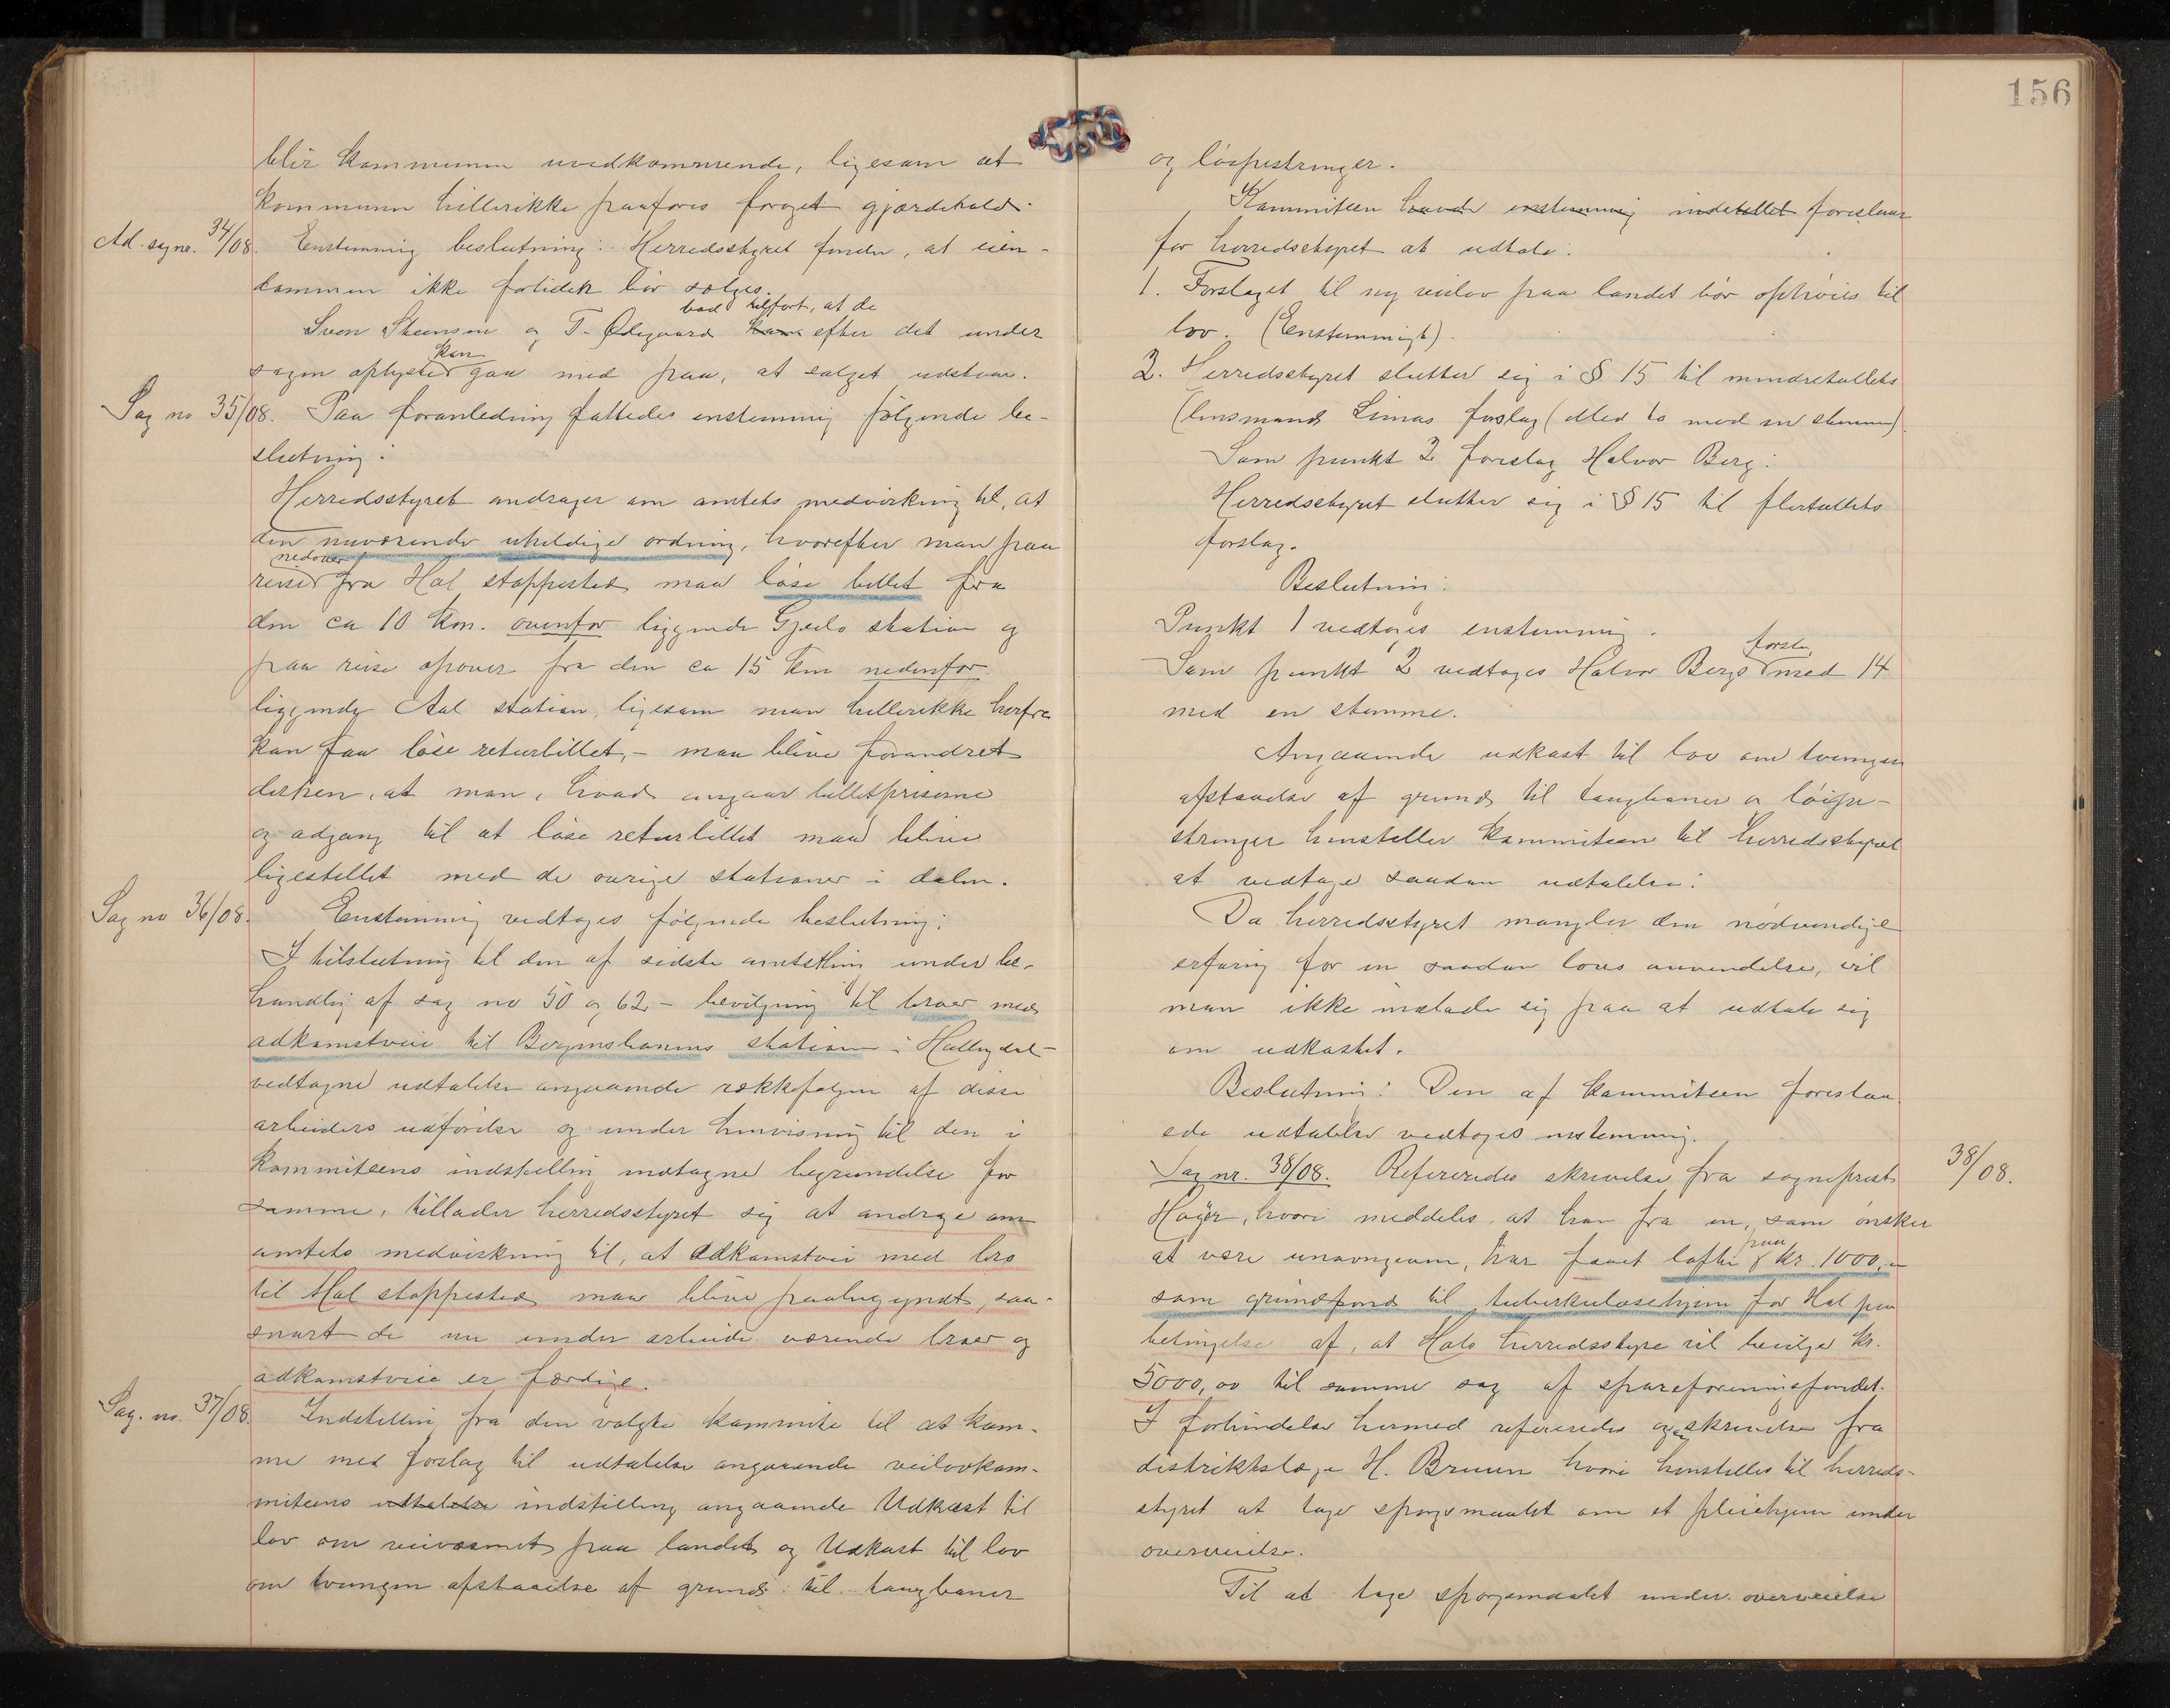 blir kommunen uvedkommende, ligesom at
kommunen hellerikke paaføres forøget gjærdehold.
Ad. sag nr. 34/08. Enstemmig beslutning: Herredsstyret finder, at eien-
dommen ikke fortiden bør sælges.
bad tilført, at de
Sven Steensen og T. Ødegaard efter det under
kan
sagen oplyste gaa med paa, at salget udstaar.
Sag no 35/08. Paa foranledning fattedes enstemmig følgende be-
slutning:
Herredsstyret andrager om amtets medvirkning til, at
den nuværende uheldige ordning, hvorefter man paa
nedover
reiser fra Hol stoppested maa løse billet fra
den ca 10 km. ovenfor liggende Gjeilo station og
paa reise opover fra den ca 15 km nedenfor
liggende Aal station, ligesom man hellerikke herfra
kan faa løse returbillet, - maa blive forandret
derhen, at man, hvad angaar billetpriserne
og adgang til at løse returbillet maa blive
ligestillet med de øvrige stationer i dalen.
Sag no 36/08. Enstemmig vedtages følgende beslutning:
I tilslutning til den af sidste amtsthing under be-
handling af sag no 50 og 62 - bevilgning til broer med
adkomstveie til Bergensbanens stationer i Hallingdal -
vedtagne udtalelse angaaende rækkefølgen af disse
arbeiders udførelse og under henvisning til den i
kommiteens indstilling indtagne begrundelse for
samme, tillader herredsstyret sig at andrage om
amtets medvirkning til, at adkomstvei med bro
til Hol stoppested maa blive paabegyndt, saa-
snart de nu under arbeide værende broer og
adkomstveie er færdige.
Sag. no. 37/08. Indstilling fra den valgte kommite til at kom-
me med forslag til udtalelse angaaende veilovkom-
miteens udtalelse indstilling angaaende Udkast til
lov om veivæsenet paa landet og Udkast til lov
om tvungen afstaaelse af grund til taugbaner
156
og løipestrenger.
Kommiteen havde enstemmig indstillet foreslaar
for herredsstyret at udtale:
1. Forslaget til ny veilov paa landet bør ophøies til
lov. (Enstemmigt).
2. Herredsstyret slutter sig i § 15 til mindretallets
(lensmand Simas forslag (Med to mod en stemme).
Som punkt 2 forslag Halvor Berg:
Herredsstyret slutter sig i § 15 til flertallets
forslag.
Beslutning:
Punkt 1 vedtages enstemmig.
forslag
Som punkt 2 vedtages Halvor Bergs med 14
med en stemme.
Angaaende udkast til lov om tvungen
afstaaelse af grund til taugbaner og løipe-
strenger henstiller kommiteen til herredsstyret
at vedtage saadan udtalelse:
Da herredsstyret mangler den nødvendige
erfaring for en saadan lovs anvendelse, vil
man ikke indlade sig paa at udtale sig
om udkastet.
Beslutning: Den af kommiteen foreslaa-
ede udtalelse vedtages enstemmig.
Sag nr. 38/08. Refereredes skrivelse fra sogneprest 38/08.
Høyer, hvori meddeles, at han fra en, som ønsker
paa
at være unavngiven, har faaet løfte kr. 1000,-
som grundfond til tuberkulosehjem for Hol paa
betingelse af, at Hols herredsstyre vil bevilge kr.
5000,00 til samme sag af spareforeningsfondet.
I forbindelse hermed refereredes og skrivelse fra
distriktslæge H. Bruun hvori henstilles til herreds-
styret at tage spørgsmaalet om et pleiehjem under
overveielse.
Til at tage spørgsmaalet under overveielse